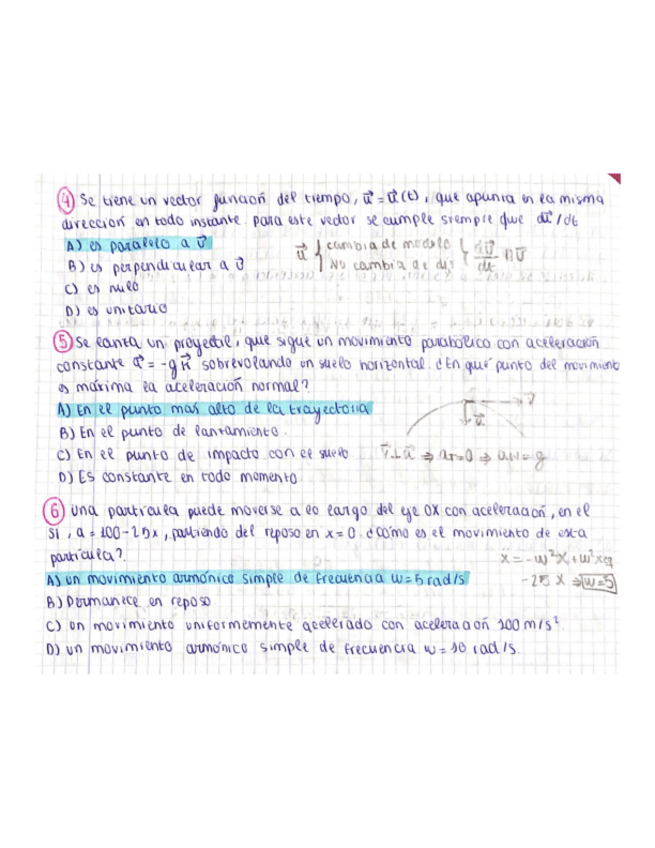 4 Se tiene un vector función del tiempo, u⃗ = u⃗(t), que apunta en la misma
dirección en todo instante. para este vector se cumple siempre que du⃗/dt
A) es paralelo a u⃗
u⃗ { cambia de modulo
B) es perpendicular a u⃗
No cambia de dir
C) es nulo
D) es unitario
5 Se lanza un proyectil, que sigue un movimiento parabólico con aceleración
constante a⃗ = -g k⃗ sobrevolando un suelo horizontal. ¿En qué punto del movimiento
es máxima la aceleración normal?
A) En el punto mas alto de la trayectoria
B) En el punto de lanzamiento.
C) En el punto de impacto con el suelo
v⃗⊥a⃗ ⇒ aT=0 ⇒ aN=g
D) ES constante en todo momento
6 Una partícula puede moverse a lo largo del eje OX con aceleración, en el
SI, a = 100-25x, partiendo del reposo en x=0. ¿cómo es el movimiento de esta
partícula?.
ẍ = -w²x + w²xeq
A) un movimiento armónico simple de frecuencia w=5 rad/s
-25 x ⇒ w=5
B) Permanece en reposo
C) un movimiento uniformemente acelerado con aceleración 100 m/s².
D) un movimiento armónico simple de frecuencia w=10 rad/s.